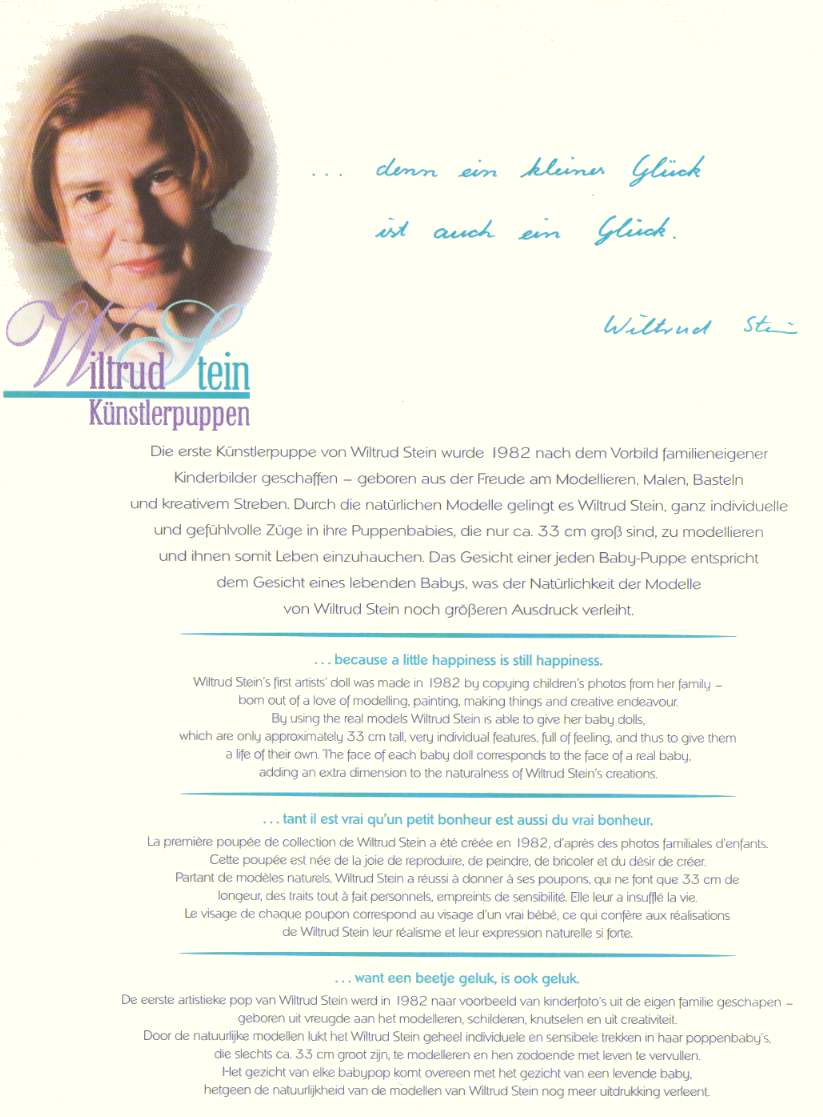 ... denn ein kleines Glück
ist auch ein Glück.
Wiltrud Stein
Wiltrud Stein
Künstlerpuppen
Die erste Künstlerpuppe von Wiltrud Stein wurde 1982 nach dem Vorbild familieneigener
Kinderbilder geschaffen – geboren aus der Freude am Modellieren, Malen, Basteln
und kreativem Streben. Durch die natürlichen Modelle gelingt es Wiltrud Stein, ganz individuelle
und gefühlvolle Züge in ihre Puppenbabies, die nur ca. 33 cm groß sind, zu modellieren
und ihnen somit Leben einzuhauchen. Das Gesicht einer jeden Baby-Puppe entspricht
dem Gesicht eines lebenden Babys, was der Natürlichkeit der Modelle
von Wiltrud Stein noch größeren Ausdruck verleiht.
... because a little happiness is still happiness.
Wiltrud Stein's first artists' doll was made in 1982 by copying children's photos from her family –
born out of a love of modelling, painting, making things and creative endeavour.
By using the real models Wiltrud Stein is able to give her baby dolls,
which are only approximately 33 cm tall, very individual features, full of feeling, and thus to give them
a life of their own. The face of each baby doll corresponds to the face of a real baby,
adding an extra dimension to the naturalness of Wiltrud Stein's creations.
... tant il est vrai qu'un petit bonheur est aussi du vrai bonheur.
La première poupée de collection de Wiltrud Stein a été créée en 1982, d'après des photos familiales d'enfants.
Cette poupée est née de la joie de reproduire, de peindre, de bricoler et du désir de créer.
Partant de modèles naturels, Wiltrud Stein a réussi à donner à ses poupons, qui ne font que 33 cm de
longeur, des traits tout à fait personnels, empreints de sensibilité. Elle leur a insufflé la vie.
Le visage de chaque poupon correspond au visage d'un vrai bébé, ce qui confère aux réalisations
de Wiltrud Stein leur réalisme et leur expression naturelle si forte.
... want een beetje geluk, is ook geluk.
De eerste artistieke pop van Wiltrud Stein werd in 1982 naar voorbeeld van kinderfoto's uit de eigen familie geschapen –
geboren uit vreugde aan het modelleren, schilderen, knutselen en uit creativiteit.
Door de natuurlijke modellen lukt het Wiltrud Stein geheel individuele en sensibele trekken in haar poppenbaby's,
die slechts ca. 33 cm groot zijn, te modelleren en hen zodoende met leven te vervullen.
Het gezicht van elke babypop komt overeen met het gezicht van een levende baby,
hetgeen de natuurlijkheid van de modellen van Wiltrud Stein nog meer uitdrukking verleent.